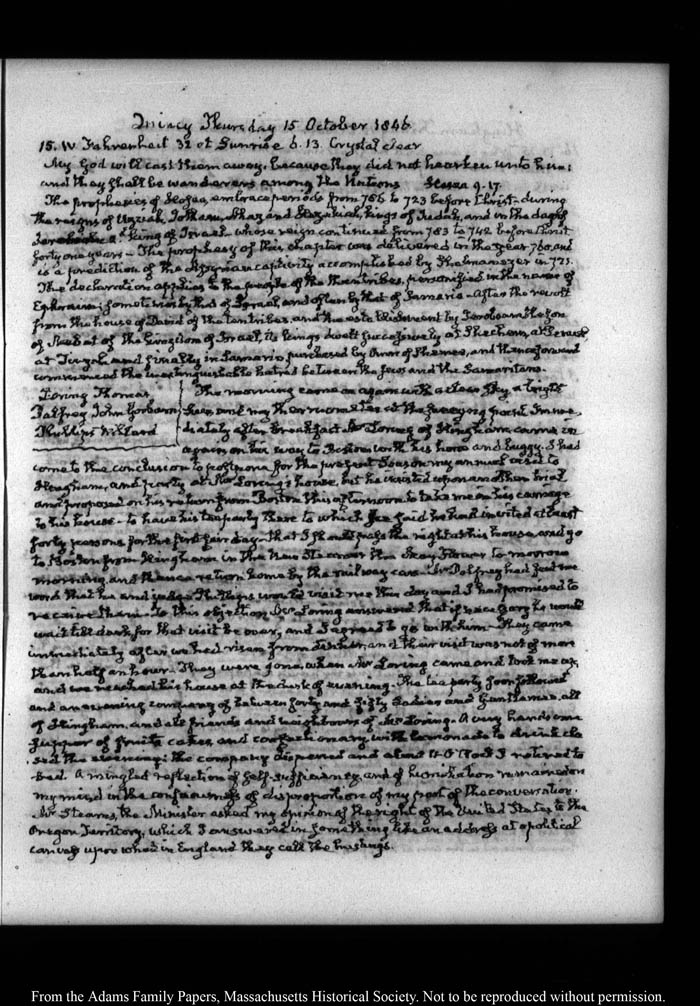 Quincy Thursday 15 October 1846
15. W Fahrenheit 32 at Sunrise 6.13. Crystal clear
My God will cast them away, because they did not hearken unto him:
and they shall be wanderers among the Nations Hosea 9.17.
The prophecies of Hosea, embrace periods from 786 to 723 before Christ during
the reigns of Uzziah, Jotham, Ahaz and Hezekiah, kings of Judah, and in the days of
Jeroboam 2d King of Israel whose reign continued from 783 to 742 before Christ
forty one years – The prophecy of this chapter was delivered in the year 760, and
is a prediction of the Assyrian captivity accomplished by Shalmanezer in 721.
The declaration applies to the people of the ten tribes, personified in the name of
Ephraim; sometimes by that of Israel, and often by that of Samaria – After the revolt
from the house of David of the ten tribes, and the establishment by Jeroboam the son
of Nebat of the Kingdom of Israel, its kings dwelt successively at Shechem, at Penuel,
at Tirzah and finally in Samaria purchased by Omri of Shemer, and thenceforward
commenced the inextinguishable hatred between the Jews and the Samaritans.
Loring Thomas The morning came on again with a clear sky, a bright
Palfrey John Gorham Sun, and my thermometer at the freezing point. Imme-
Phillips Willard diately after breakfast Mr Loring of Hingham came in
again on his way to Boston with his horse and buggy. I had
come to the conclusion to postpone for the present Season my annual visit to
Hingham, and party at Mr Loring's house, but he insisted upon another trial
and proposed on his return from Boston this afternoon to take me in his carriage
to his house – to have his tea party there to which he said he had invited at least
forty persons for the first fair day – that I should pass the night at his house and go
to Boston from Hingham in the new Steamer the May Flower to morrow
morning, and thence return home by the railway cars – Dr Palfrey had sent me
word that he and Judge Phillips would visit me this day and I had promised to
receive them. To this objection Mr Loring answered that if necessary he would
wait till dark, for that visit be over, and I agreed to go with him – They came
immediately after we had risen from dinner, and their visit was not of more
than half an hour. They were gone, when Mr Loring came and took me up,
and we reached his house at the dusk of evening. The tea party soon followed
and an evening company of between forty and fifty Ladies and Gentlemen, all
of Hingham, and all friends and neighbours of Mr Loring. A very handsome
supper of fruits cakes, and confectionary, with lemonade to drink clo
sed the evening; the company dispersed and about I retired to
bed. A mingled reflection of self-sufficiency, and of humiliation remained on
my mind in the consciousness of disproportion of my part of the conversation.
Mr Stearns, the Minister asked my opinion of the right of the United States to the
Oregon Territory, which I answered in something like an address at a political
canvass upon what in England they call the hustings.
From the Adams Family Papers, Massachusetts Historical Society. Not to be reproduced without permission.